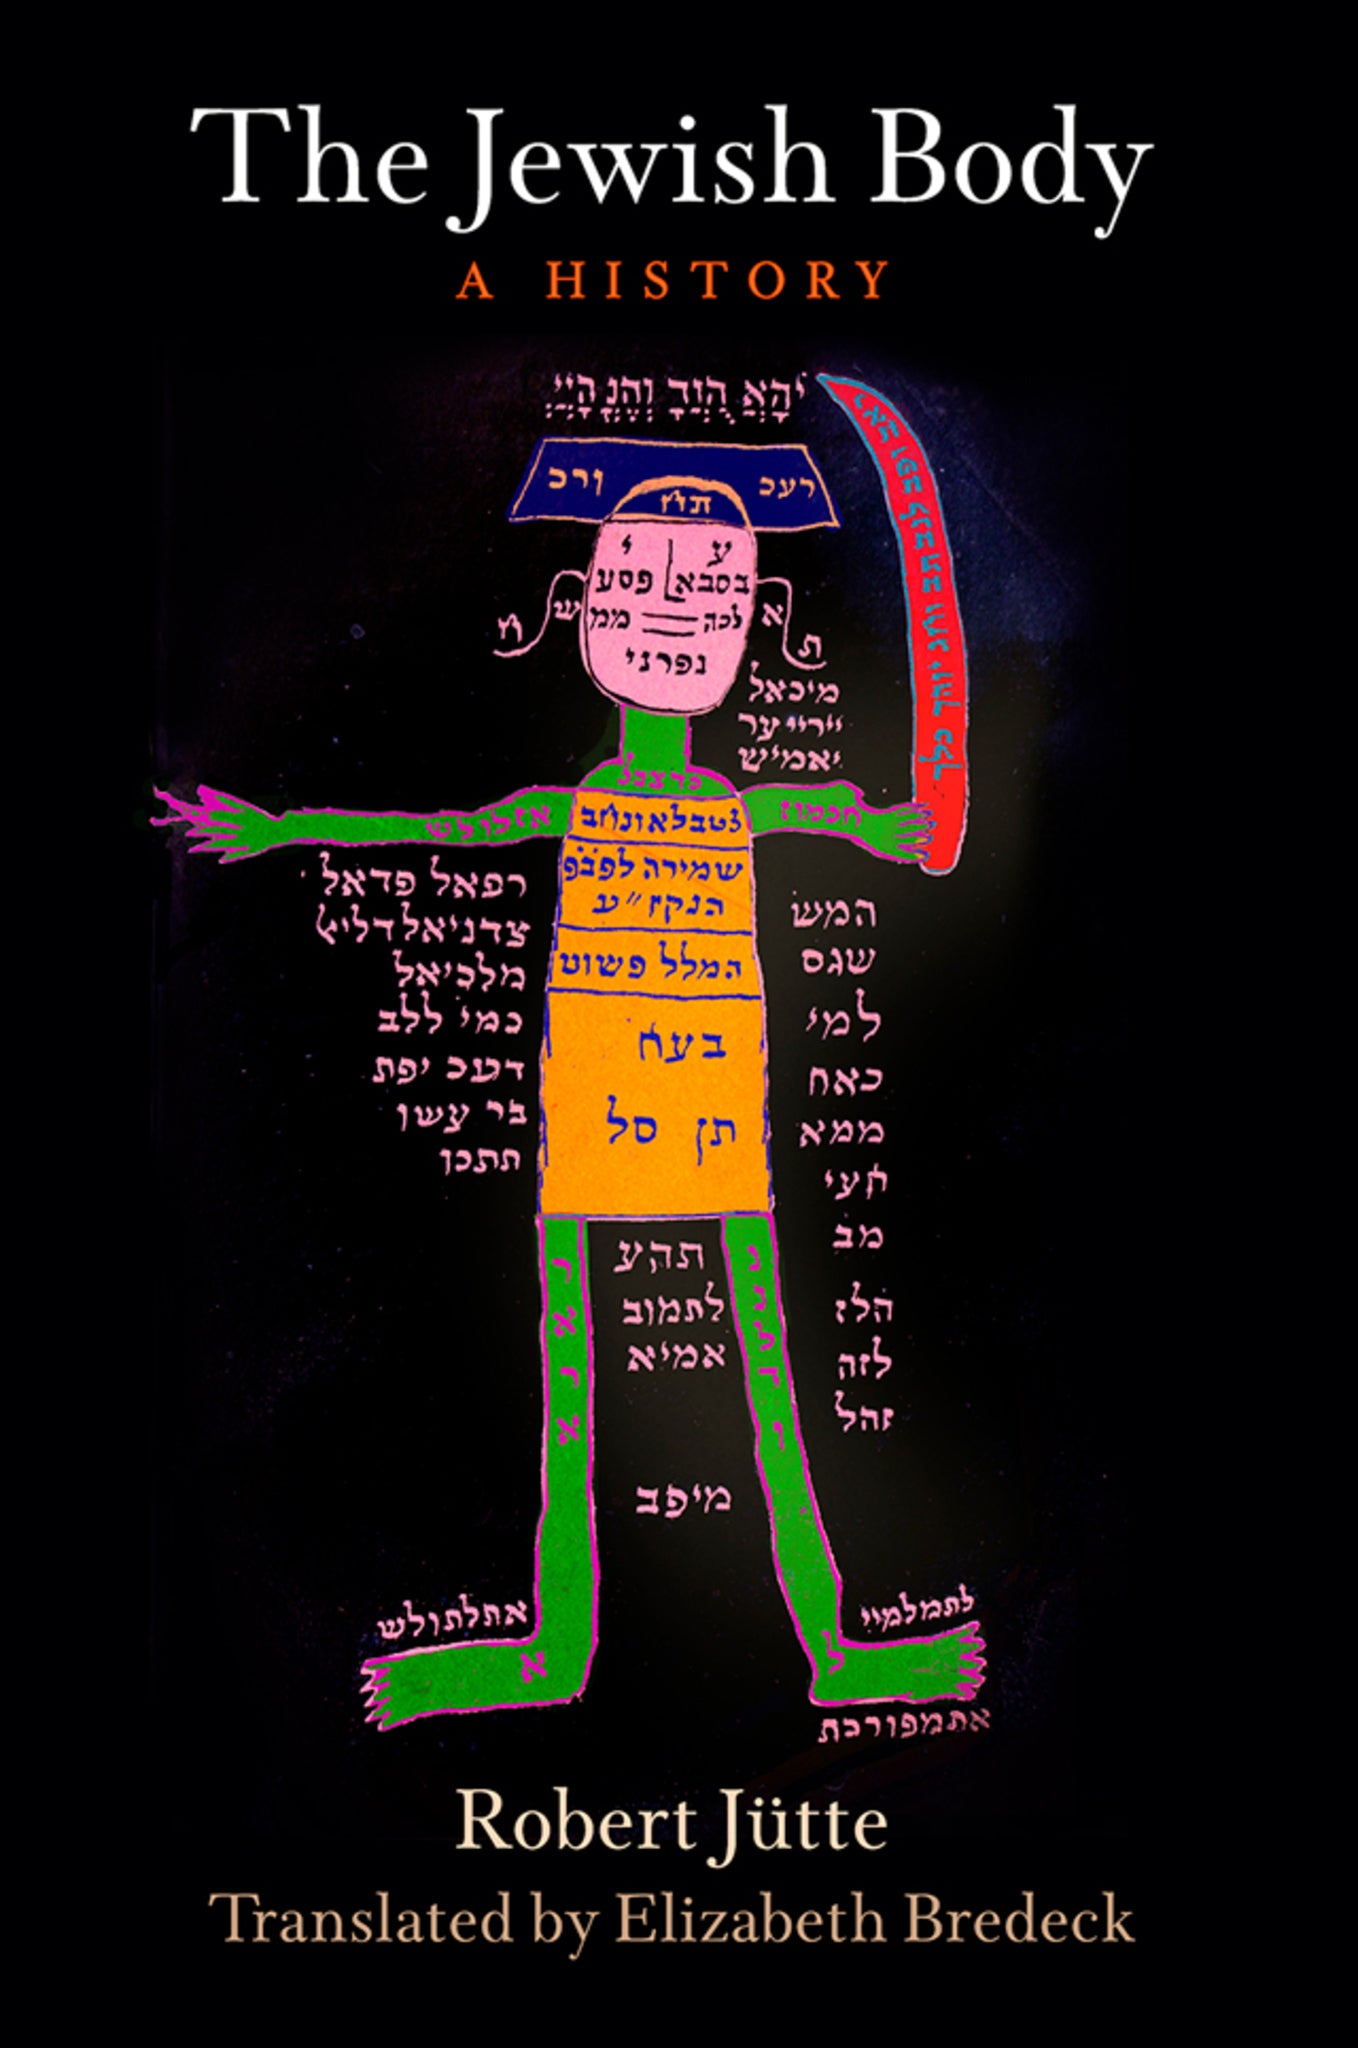 The Jewish Body
A HISTORY
ורכ
רעכ
תוז
י
ע
פסע
בסבא
ש
ממ
לכה
א
ת
נפרני
מיכאל
יאמיש
אזלולש
חכמוז
שמירה לפבפ
הנקז״ע
המלל פשוט
בעח
תן סל
רפאל פדאל
מלכיאל
כמי ללב
דעכ יפת
בר עשו
תתכן
המש
שגס
למי
כאח
ממא
חעי
מב
הלז
לזה
זהל
תהע
לתמוב
אמיא
מיפב
ר
א
ר
א
אתלתולש
לתמלמיי
א
ל
אתמפורכת
Robert Jütte
Translated by Elizabeth Bredeck